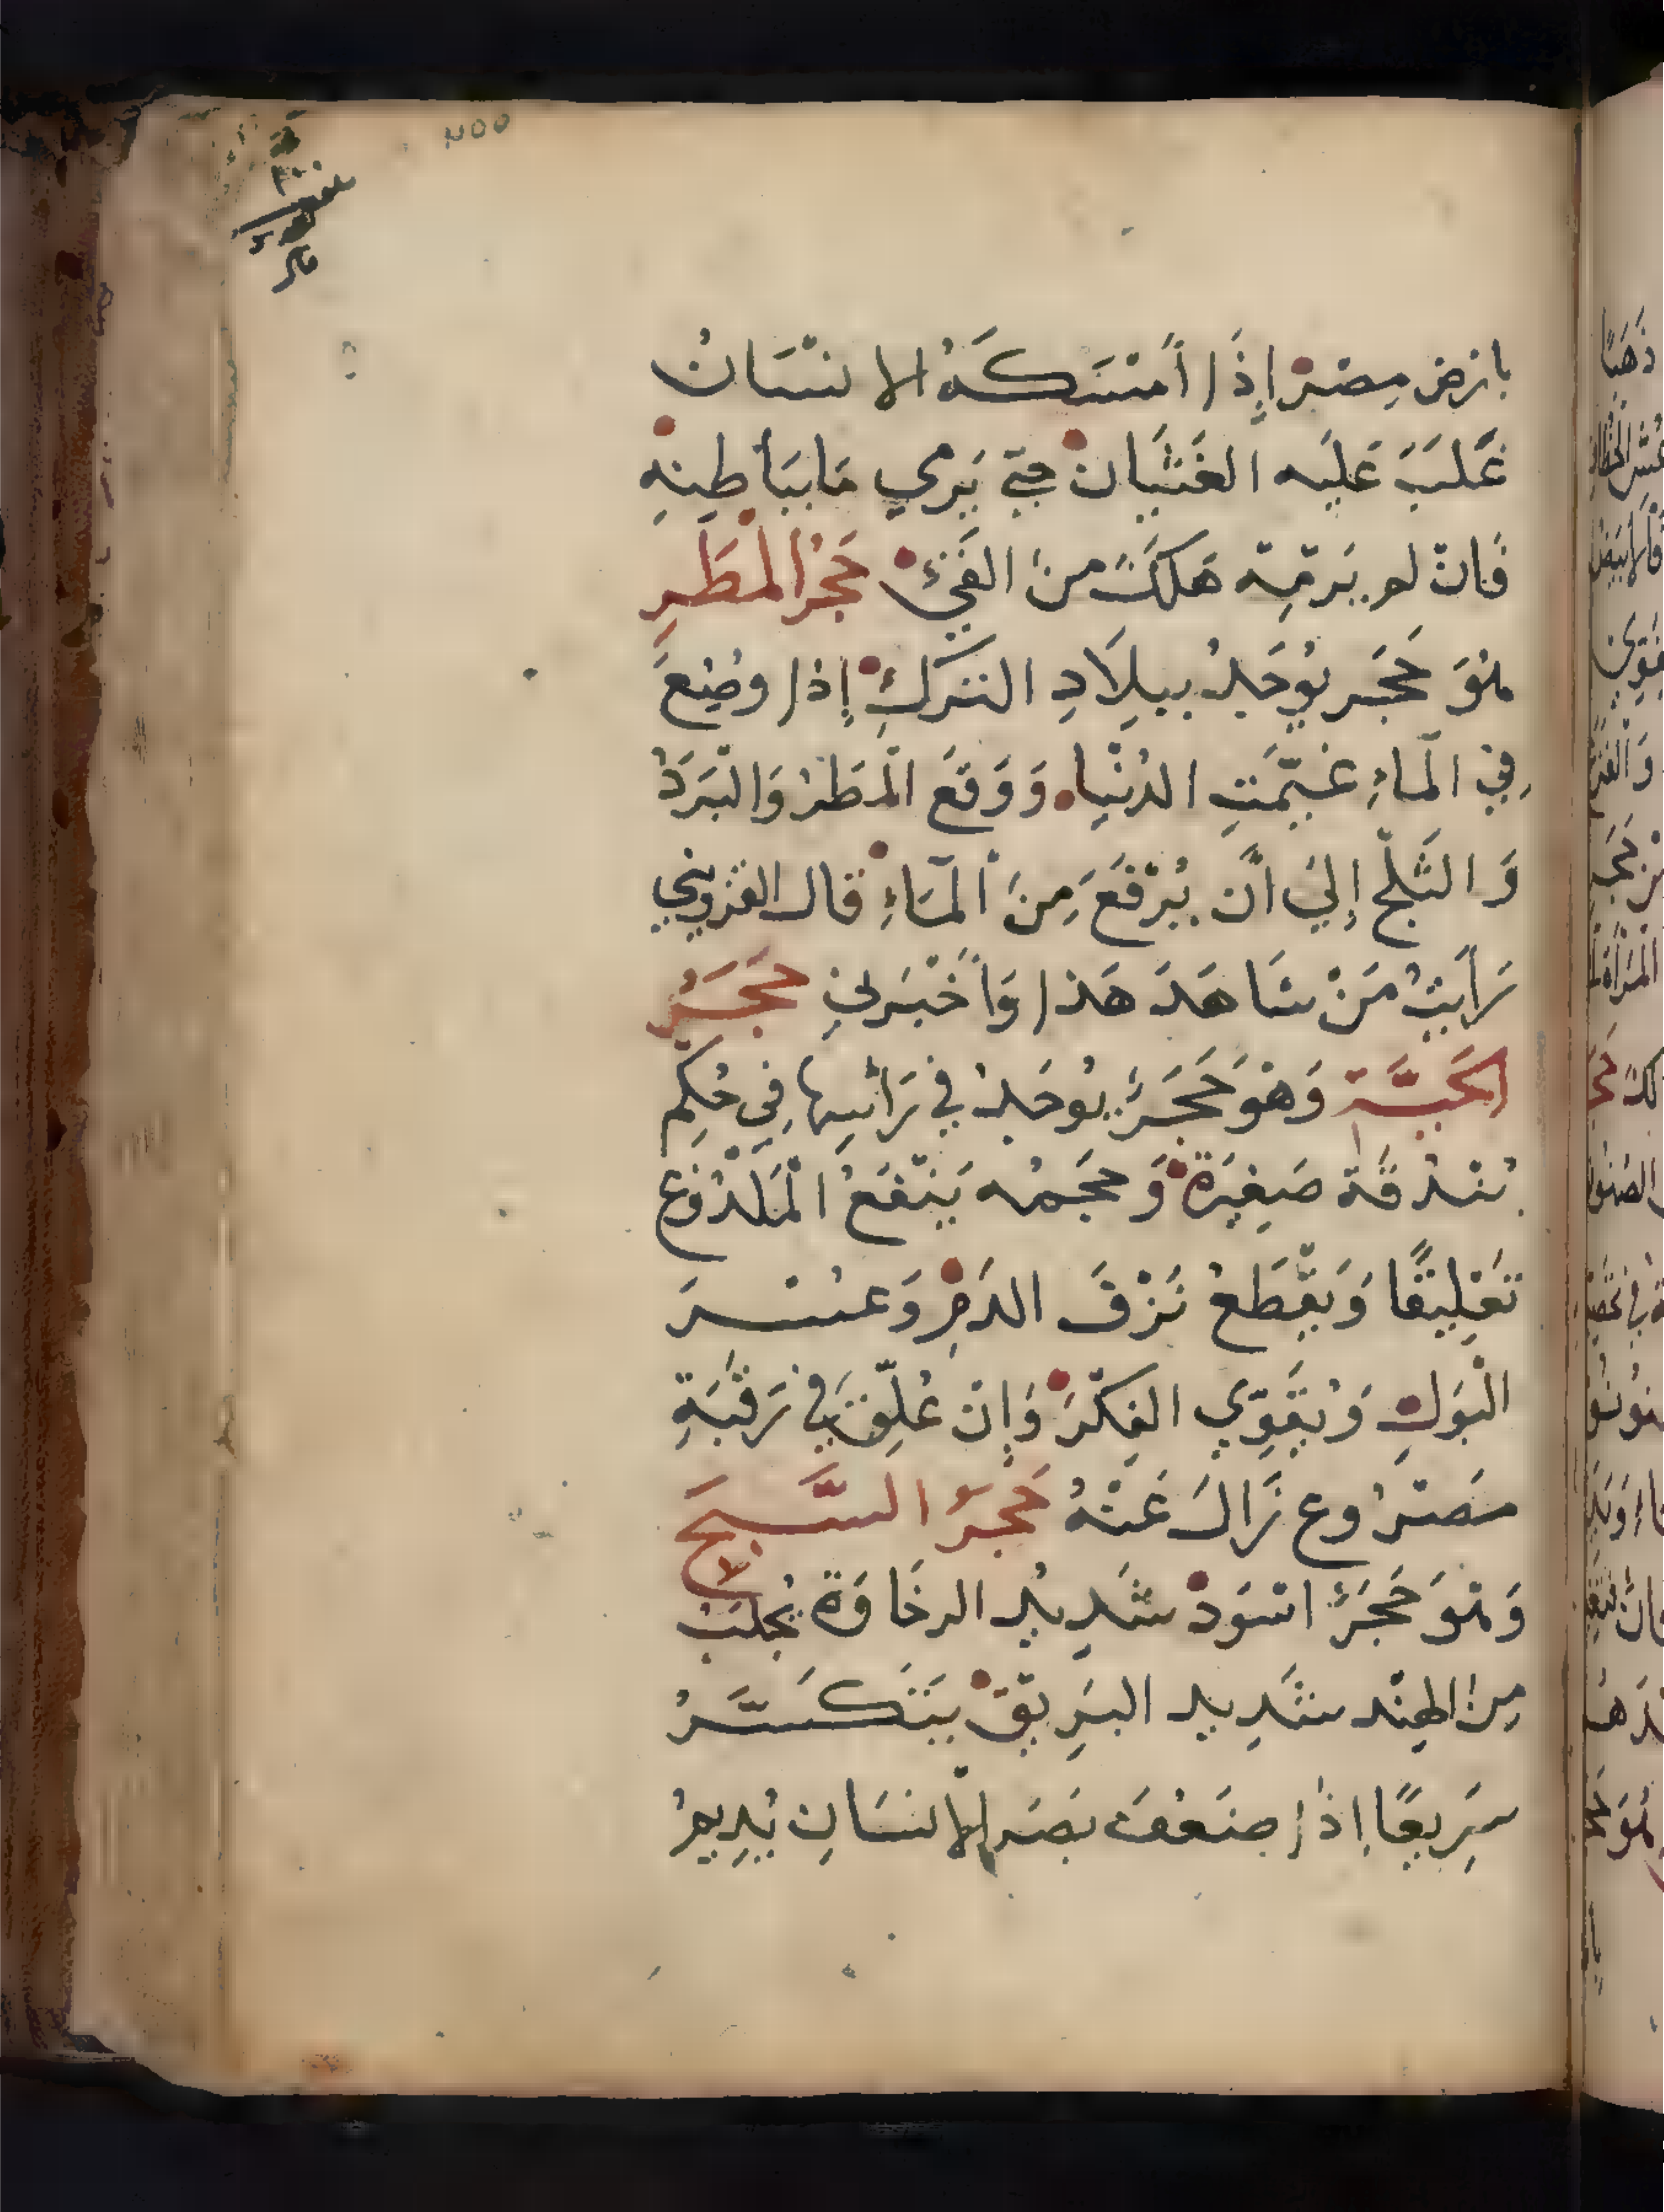 بِارْضِ مِصْرْ إِذَا أَمْسَكَهُ الانْسَانُ
غَلَبَ عَلَيه الغَثَيَانْ حتى يَرمي مَا ببَاطِنِهِ
فَانْ لم يَرمِهِ هَلَكَ منَ القَيْ حَجَرُ الْمَطَرِ
هُوَ حَجَر يُوجَدُ ببِلَادِ التركِ إذا وُضِعَ
فِي الْمَاءِ غَيَّمَتِ الدُنْيا وَوَقَعَ الْمَطَرُ وَالْبَرَدُ
وَالثَلْجُ إِليَ أَن يُرْفَعَ مِنَ الْمَاءِ قال القزويني
رَأَيتُ مَنْ شَاهَدَ هَذا وَأَخْبَرَنِي حَجَرُ
الحَيَّة وَهُوَ حَجَرٌ يُوجَدُ في رَأسِهَا فِي حُكِم
بُنْدُقَة صَغِيَرةْ وَحجمُه يَنْفَعُ الْمَلْدُوغ
تَعْلِيقًا وَيَقْطَعُ نَزْفَ الدَمِ وَعُسْرَ
الْبَولِ وَيُقَوِّي الفِكْرَ وَإِنْ عُلِّقَ في رَقَبَةِ
مَصْرُوع زَالَ عَنْهُ حَجَرُ السَّبَج
وَهُوَ حَجَرٌ اسْوَدْ شَدِيدُ الرخَاوَة يُجْلَبُ
مِنَ الهِنْد شَدِيد البَرِيقْ يَتَكَسَّرُ
سَرِيعًا إذَا ضَعُفَ بَصَر الإنسَانِ يُدِيمُ